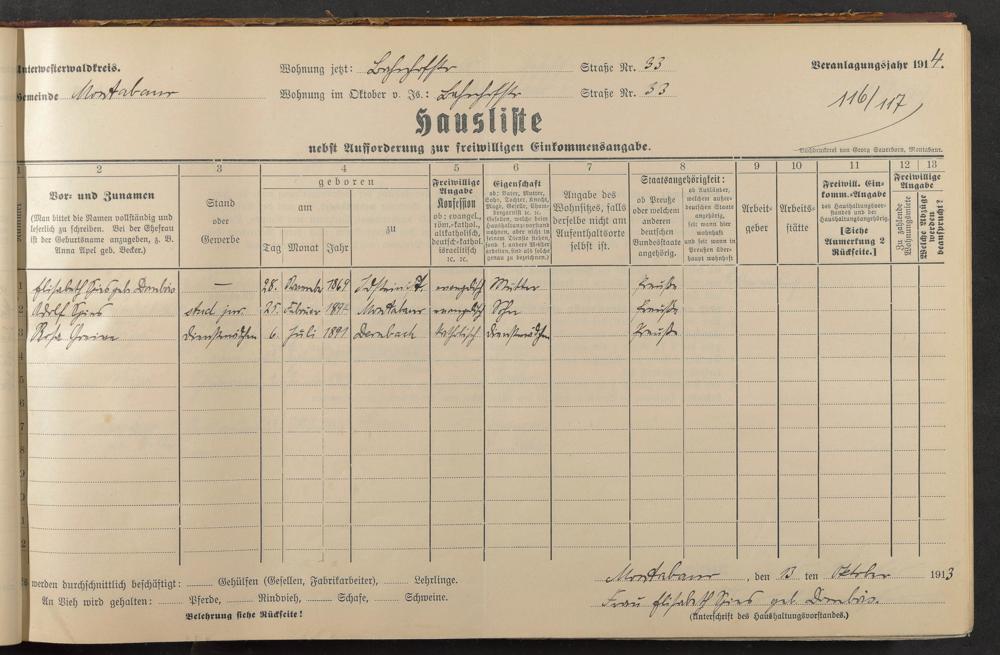 Unterwesterwaldkreis.
Wohnung jetzt: Bahnhofstr Straße Nr. 33
Veranlagungsjahr 1914.
Gemeinde Montabaur
Wohnung im Oktober v. Js.: Bahnhofstr Straße Nr. 33
116/117
Hausliste
nebst Aufforderung zur freiwilligen Einkommensangabe.
Buchdruckerei von Georg Sauerborn, Montabaur.
1 2 3 4 5 6 7 8 9 10 11 12 13
Vor- und Zunamen
(Man bittet die Namen vollständig und
leserlich zu schreiben. Bei der Ehefrau
ist der Geburtsname anzugeben, z. B.
Anna Apel geb. Becker.)
Stand
oder
Gewerbe
geboren
am
Tag Monat Jahr
zu
Freiwillige
Angabe
Konfession
ob: evangel.,
röm.-kathol.,
altkatholisch,
deutsch-kathol.
israelitisch
ic. ic.
Eigenschaft
ob: Vater, Mutter,
Sohn, Tochter, Knecht,
Magd, Geselle,
Angabe des
Wohnsitzes, falls
derselbe nicht am
Aufenthaltsorte
selbst ist.
Staatsangehörigkeit:
ob Preuße
oder welchem
deutschen
Bundesstaate
angehörig.
ob Ausländer,
welchem außer-
deutschen Staate
angehörig,
seit wann hier
wohnhaft
und seit wann in
Preußen über-
haupt wohnhaft
Arbeit-
geber
Arbeits-
stätte
Freiwill. Ein-
komm.-Angabe
des Haushaltungsvor-
standes und der
Haushaltungsangehörig.
[Siehe
Anmerkung 2
Rückseite.]
Freiwillige
Angabe
Zu zahlende
Wohnungsmiete
Welche Abzüge
werden
beansprucht?
1 Elisabeth Spies geb. — 28. 1869 evangelisch Mutter Preuße
2 Adolf Spies stud. jur. 25. Februar 1894 Montabaur evangelisch Sohn Preuße
3 Rosa Dienstmädchen 6. Juli 1891 Dernbach katholisch Dienstmädchen Preuße
4
5
6
7
8
9
0
1
2
werden durchschnittlich beschäftigt: Gehülfen (Gesellen, Fabrikarbeiter), Lehrlinge.
An Vieh wird gehalten: Pferde, Rindvieh, Schafe, Schweine.
Belehrung siehe Rückseite!
Montabaur, den 13 ten Oktober 1913
Frau Elisabeth Spies geb.
(Unterschrift des Haushaltungsvorstandes.)